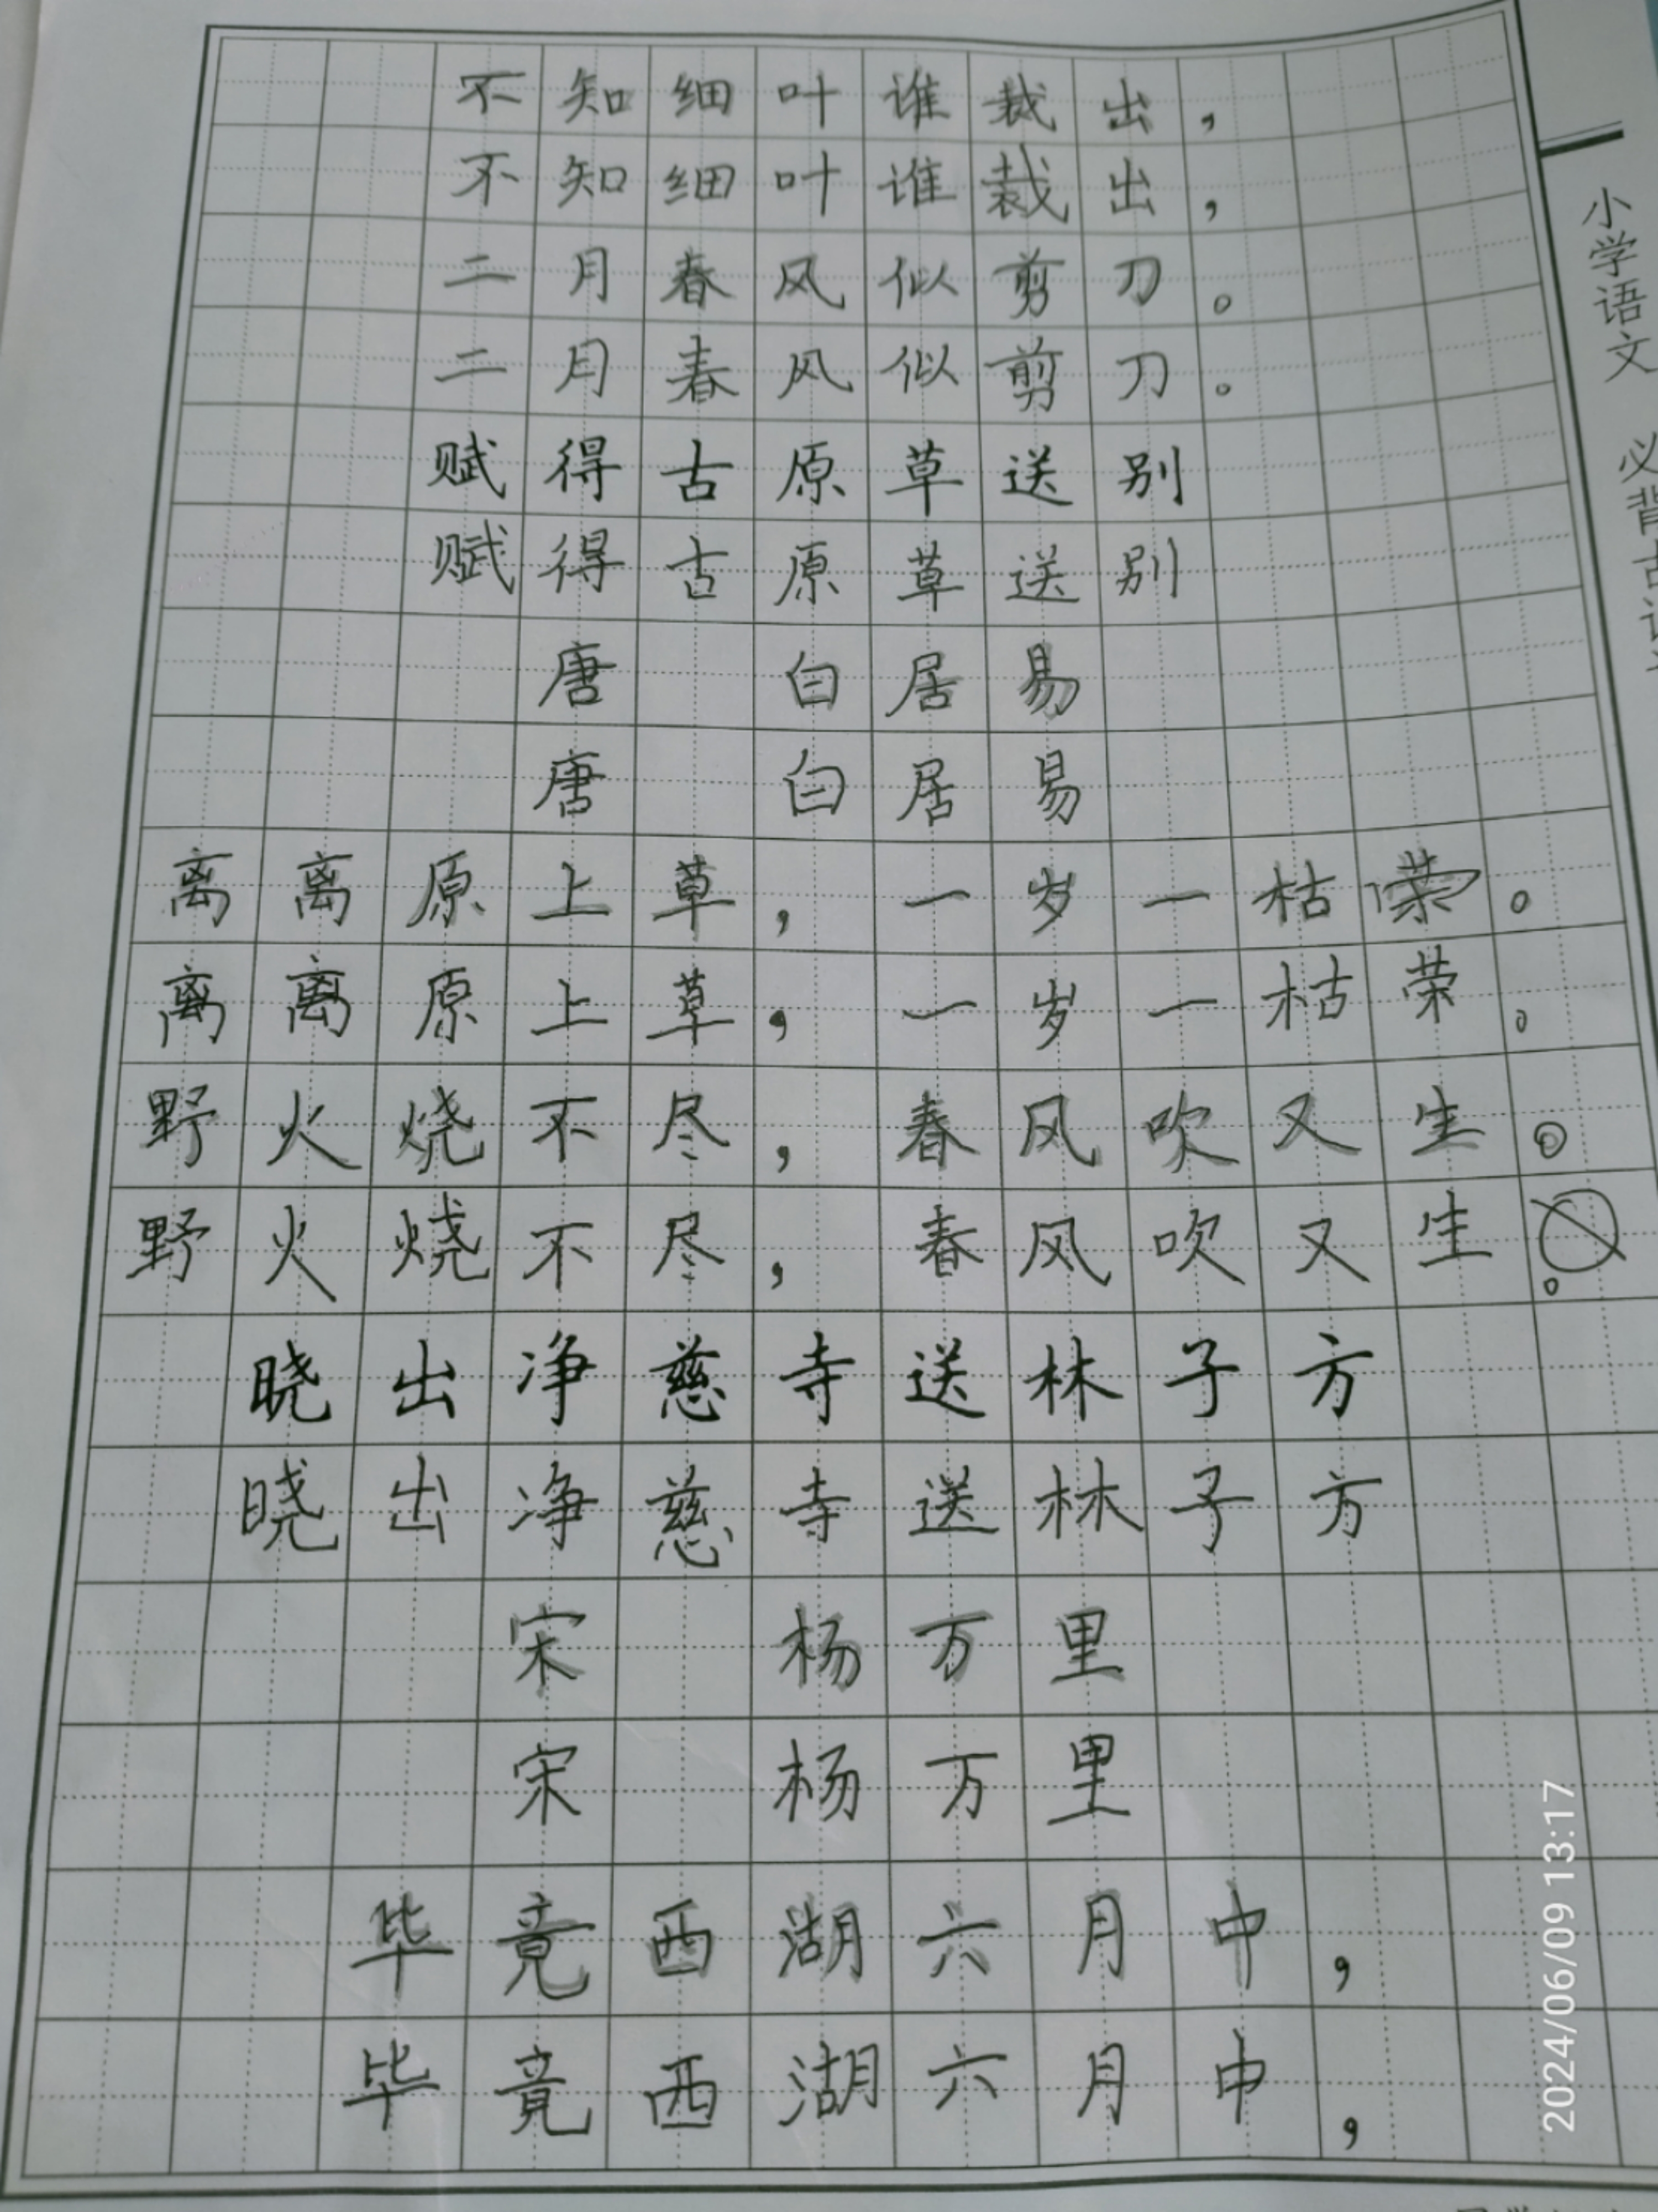 不知细叶谁裁出，
不知细叶谁裁出，
二月春风似剪刀。
二月春风似剪刀。
赋得古原草送别
赋得古原草送别
唐 白居易
唐 白居易
离离原上草，一岁一枯荣。
离离原上草，一岁一枯荣。
野火烧不尽，春风吹又生。
野火烧不尽，春风吹又生。
晓出净慈寺送林子方
晓出净慈寺送林子方
宋 杨万里
宋 杨万里
毕竟西湖六月中，
毕竟西湖六月中，
小学语文 必背古
2024/06/09 13:17